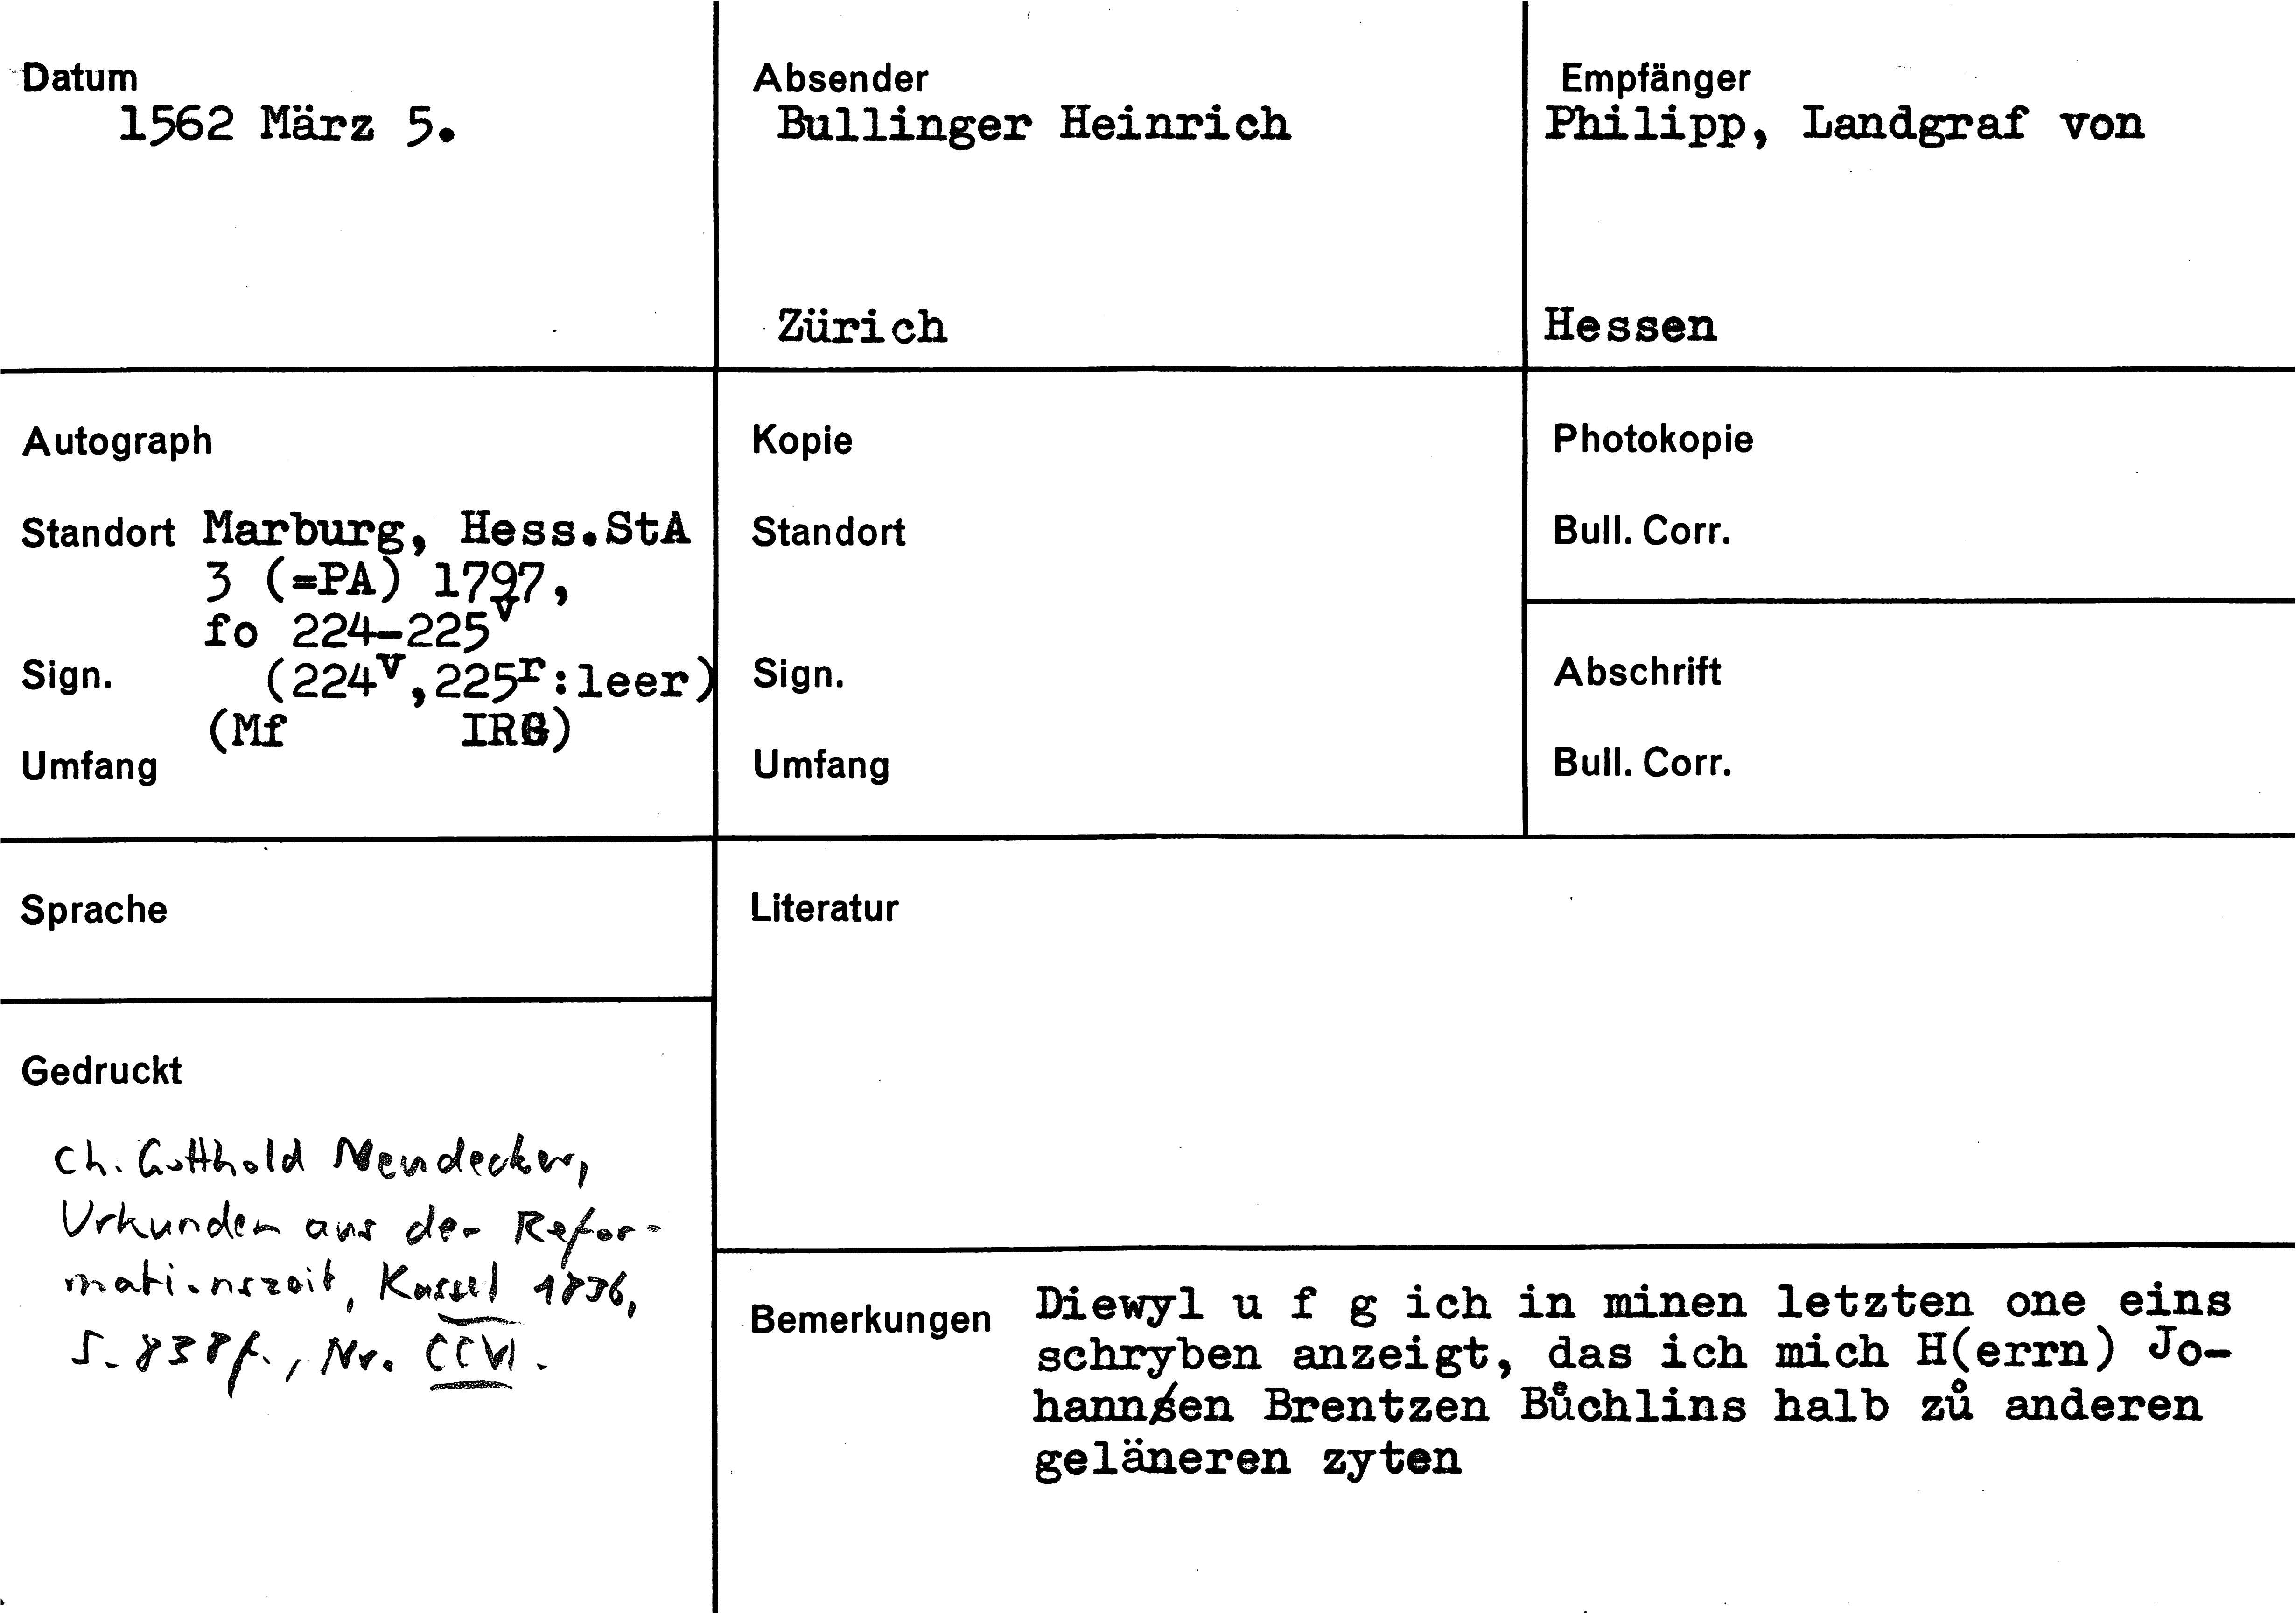 Datum
1562 März 5.
Absender
Bullinger Heinrich
Zürich
Empfänger
Philipp, Landgraf von
Hessen
Autograph
Standort Marburg, Hess.StA
3 (=PA) 1797,
fo 224-225v
Sign. (224v,225r:leer)
(Mf IRG)
Umfang
Kopie
Standort
Sign.
Umfang
Photokopie
Bull. Corr.
Abschrift
Bull. Corr.
Sprache
Gedruckt
Ch. Gotthold Neudecker,
Urkunden aus der Refor-
mationszeit, Kassel 1836,
S. 838f., Nr. CCVI.
Literatur
Bemerkungen Diewyl u f g ich in minen letzten one eins
schryben anzeigt, das ich mich H(errn) Jo-
hannsen Brentzen Bůchlins halb zů anderen
geläneren zyten